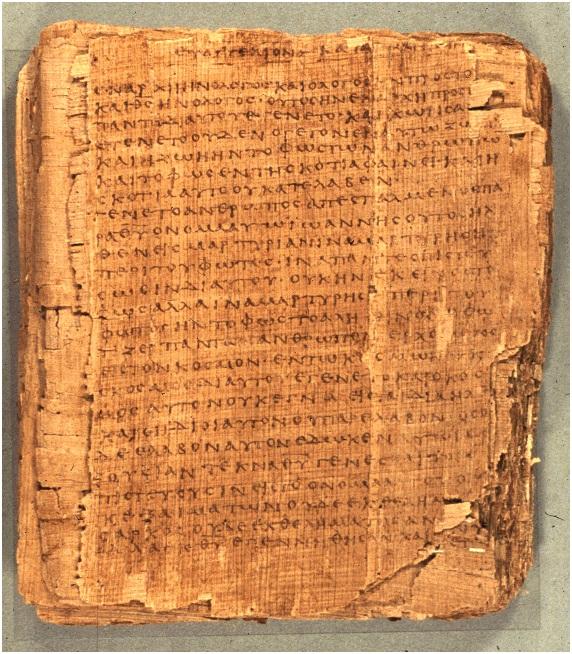 ΕΥΑΓΓΕΛΙΟΝ ΚΑΤΑ
ΕΝ ΑΡΧΗ ΗΝ Ο ΛΟΓΟϹ ΚΑΙ Ο ΛΟΓΟϹ ΗΝ ΠΡΟϹ ΤΟ
ΚΑΙ ΘϹ ΗΝ Ο ΛΟΓΟϹ · ΟΥΤΟϹ ΗΝ ΕΝ ΑΡΧΗ ΠΡΟϹ
ΠΑΝΤΑ ΔΙ ΑΥΤΟΥ ΕΓΕΝΕΤΟ · ΚΑΙ ΧΩΡΙϹ ΑΥ
ΕΓΕΝΕΤΟ ΟΥΔΕΝ Ο ΓΕΓΟΝΕΝ ΕΝ ΑΥΤΩ ΖΩΗ
ΚΑΙ Η ΖΩΗ ΗΝ ΤΟ ΦΩϹ ΤΩΝ ΑΝΘΡΩΠΩ
ΚΑΙ ΤΟ ΦΩϹ ΕΝ ΤΗ ϹΚΟΤΙΑ ΦΑΙΝΕΙ · ΚΑΙ Η
ϹΚΟΤΙΑ ΑΥΤΟ ΟΥ ΚΑΤΕΛΑΒΕΝ
ΓΕΝΕΤΟ ΑΝΘΡΩΠΟϹ ΑΠΕϹΤΑΛΜΕΝΟϹ ΠΑ
ΡΑ ΘΥ ΟΝΟΜΑ ΑΥΤΩ ΙΩΑΝΝΗϹ ΟΥΤΟϹ ΗΛ
ΘΕΝ ΕΙϹ ΜΑΡΤΥΡΙΑΝ ΙΝΑ ΜΑΡΤΥΡΗϹΗ
ΠΕΡΙ ΤΟΥ ΦΩΤΟϹ · ΙΝΑ ΠΑΝΤΕϹ ΠΙϹΤΕΥ
ϹΩϹΙΝ ΔΙ ΑΥΤΟΥ · ΟΥΚ ΗΝ ΕΚΕΙΝΟϹ ΤΟ
ΦΩϹ ΑΛΛΑ ΙΝΑ ΜΑΡΤΥΡΗϹΗ ΠΕΡΙ ΤΟΥ
ΦΩΤΟϹ ΗΝ ΤΟ ΦΩϹ ΤΟ ΑΛΗΘΙΝΟΝ Ο ΦΩ
ΤΙΖΕΙ ΠΑΝΤΑ ΑΝΘΡΩΠΟΝ ΕΡΧΟΜΕΝΟΝ
ΕΙϹ ΤΟΝ ΚΟϹΜΟΝ · ΕΝ ΤΩ ΚΟϹΜΩ ΗΝ
ΚΑΙ Ο ΚΟϹΜΟϹ ΔΙ ΑΥΤΟΥ ΕΓΕΝΕΤΟ ΚΑΙ Ο ΚΟϹ
ΜΟϹ ΑΥΤΟΝ ΟΥΚ ΕΓΝΩ ΕΙϹ ΤΑ ΙΔΙΑ ΗΛ
ΚΑΙ ΟΙ ΙΔΙΟΙ ΑΥΤΟΝ ΟΥ ΠΑΡΕΛΑΒΟΝ ΟϹΟΙ
ΔΕ ΕΛΑΒΟΝ ΑΥΤΟΝ ΕΔΩΚΕΝ ΑΥΤΟΙϹ
ΞΟΥϹΙΑΝ ΤΕΚΝΑ ΘΥ ΓΕΝΕϹΘΑΙ ΤΟΙϹ
ΠΙϹΤΕΥΟΥϹΙΝ ΕΙϹ ΤΟ ΟΝΟΜΑ
ΑΙΜΑΤΩΝ ΟΥΔΕ ΕΚ
ϹΑΡΚΟϹ ΟΥΔΕ ΕΚ ΘΕΛΗΜΑΤΟϹ ΑΝ
ΑΛΛΑ ΕΚ ΘΥ ΕΓΕΝΝΗΘΗϹΑΝ ΚΑΙ